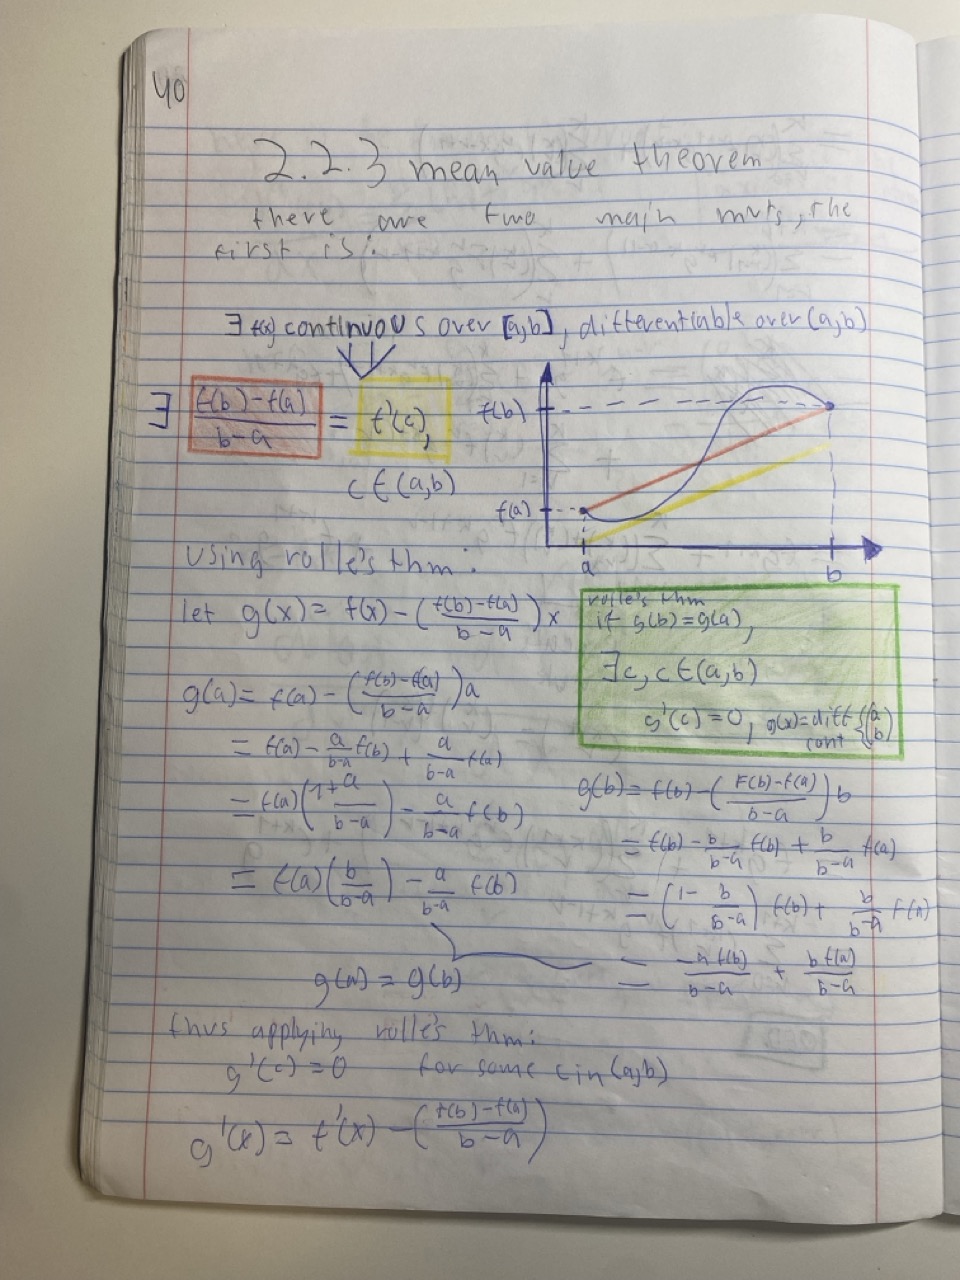 40
2.2.3 mean value theorem
there are two main mvts, the
first is:
∃ f(x) continuous over [a,b], differentiable over (a,b)
∃ (f(b)-f(a))/(b-a) = f'(c),
c ∈ (a,b)
f(b)
f(a)
a
b
using rolle's thm:
let g(x) = f(x) - ((f(b)-f(a))/(b-a))x
rolle's thm
if g(b)=g(a),
∃c, c ∈ (a,b)
g'(c) = 0, g(x)=diff {(a
cont b)
g(a) = f(a) - ((f(b)-f(a))/(b-a))a
= f(a) - a/(b-a) f(b) + a/(b-a) f(a)
= f(a)(1+a/(b-a)) - a/(b-a) f(b)
= f(a)(b/(b-a)) - a/(b-a) f(b)
g(b) = f(b) - ((F(b)-f(a))/(b-a))b
= f(b) - b/(b-a) f(b) + b/(b-a) f(a)
= (1 - b/(b-a)) f(b) + b/(b-a) f(a)
= -a f(b)/(b-a) + b f(a)/(b-a)
g(a) = g(b)
thus applying rolle's thm:
g'(c) = 0 for some c in (a,b)
g'(x) = f'(x) - ((f(b)-f(a))/(b-a))